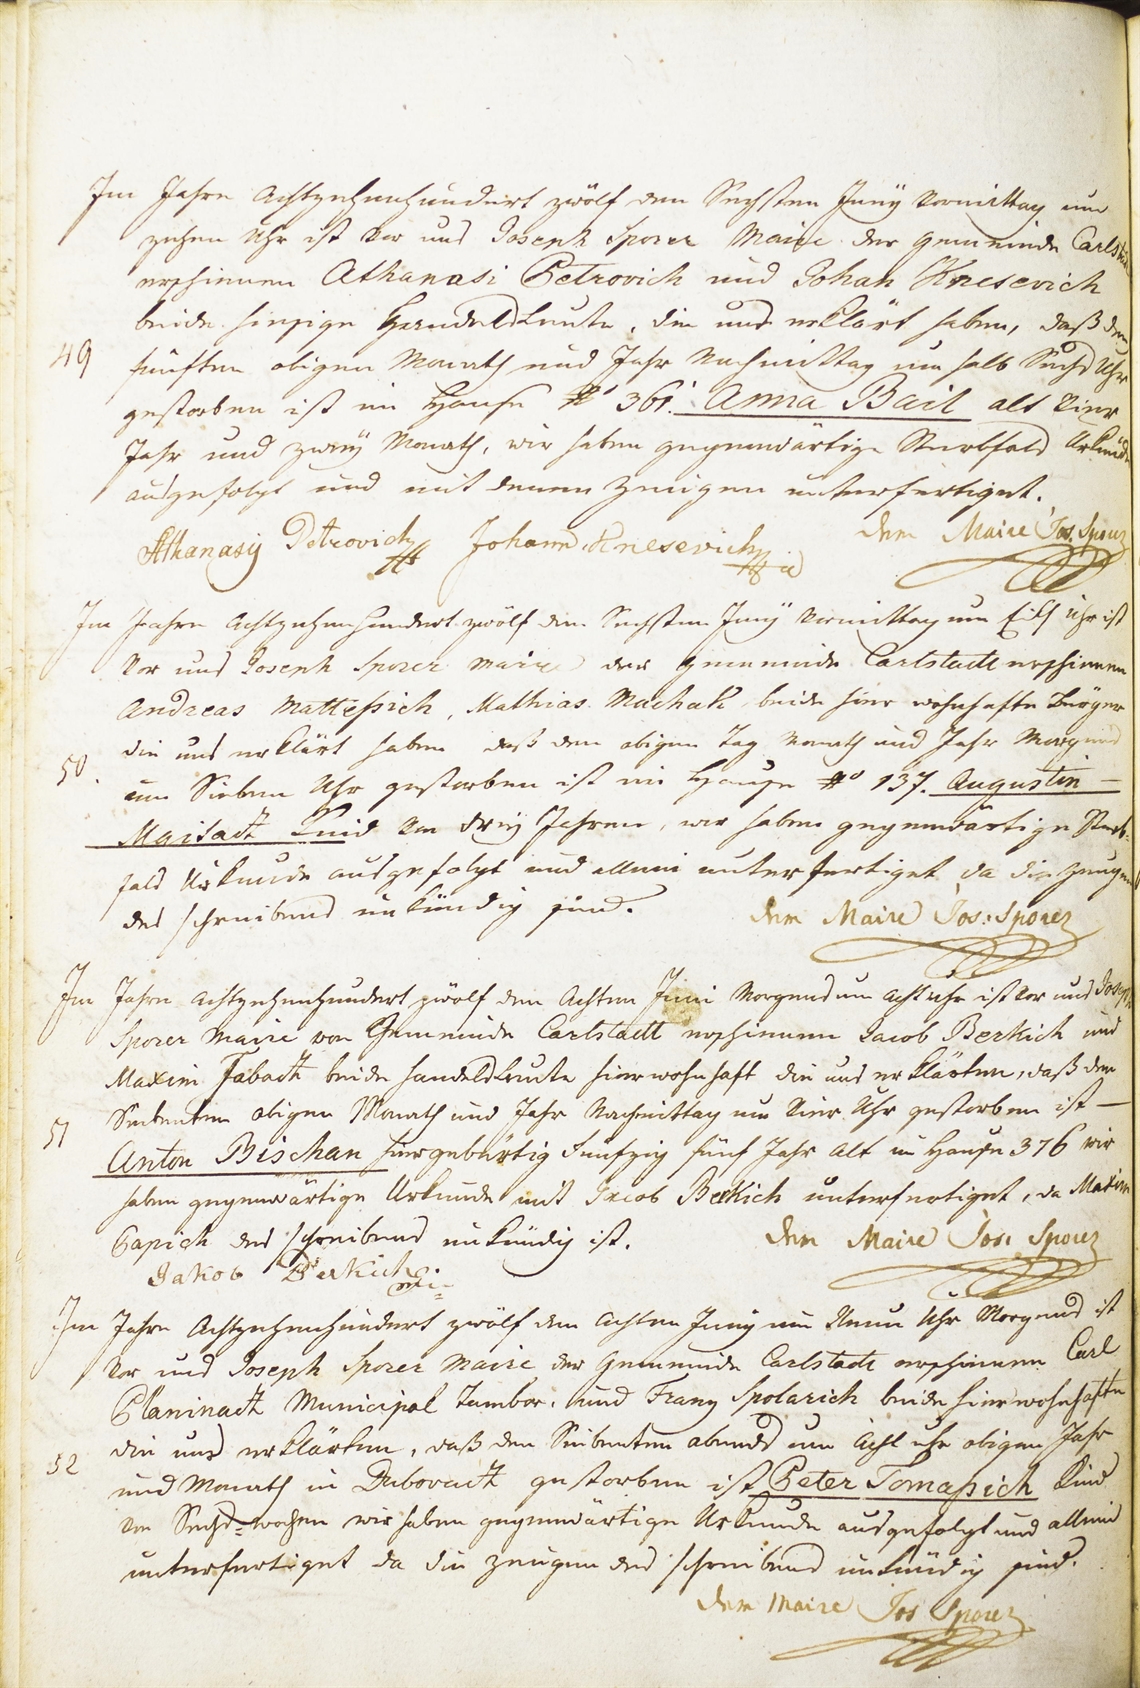 Im Jahre Achtzehenhundert zwölf den Sechsten Juny Vormittag um
zehen Uhr ist vor uns Joseph Sporer Maire der Gemeinde Carlstadt
erschienen Athanasi Petrovich und Johan Knesevich
beide hiesige Handelsleute, die uns erklärt haben, daß den
49 fünften obigen Monath und Jahr Nachmittag um halb Sechs Uhr
gestorben ist im Hause No 361. Anna Bail alt Vier
Jahr und zwey Monath, wir haben gegenwärtige Sterbfals Urkunde
ausgefolgt und mit denen Zeugen unterfertiget.
Athanasy Petrovich Johann Knesevich der Maire Jos. Sporer
Im Jahre Achtzehenhundert zwölf den Sechsten Juny Vormittag um Eilf Uhr ist
vor uns Joseph Sporer Maire der Gemeinde Carlstadt erschienen
Andreas Mattessich, Mathias Machak beide hier wohnhafte Bürger
die uns erklärt haben daß den obigen Tag Monath und Jahr Morgens
50. um Sieben Uhr gestorben ist im Hause No 137. Augustin
Maisack Kind von drey Jahren, wir haben gegenwärtige Sterb-
fals Urkunde ausgefolgt und allein unterfertiget, da die Zeugen
des schreibens unkündig sind. der Maire Jos: Sporer
Im Jahre Achtzehenhundert zwölf den Achten Juni Morgends um Acht uhr ist vor uns Joseph
Sporer Maire von Gemeinde Carlstadt erschienen Jacob Berkich und
Maxim beide handelsleute hier wohnhaft die uns erklärten, daß den
51 Siebenten obigen Monath und Jahr Nachmittag um Vier Uhr gestorben ist —
Anton Bischan hier gebürtig Funfzig fünf Jahr Alt im Hause 376 wir
haben gegenwärtige Urkunde mit Jacob Berkich unterfertiget, da Maxim
des schreibens unkündig ist. der Maire Jos. Sporer
Jakob Berkich
Im Jahre Achtzehenhundert zwölf den Achten Juny um Neun Uhr Morgends ist
vor uns Joseph Sporer Maire der Gemeinde Carlstadt erschienen Carl
Planinack Municipal Tambor, und Franz Spolarich beide hier wohnhafte
52 die uns erklärten, daß den Siebenten abends um Acht uhr obigen Jahr
und Monath in Dubovack gestorben ist Peter Tomassich Kind
von Sechs-wochen wir haben gegenwärtige Urkunde ausgefolgt und allein
unterfertiget da die Zeugen des schreibens unkündig sind.
der Maire Jos Sporer